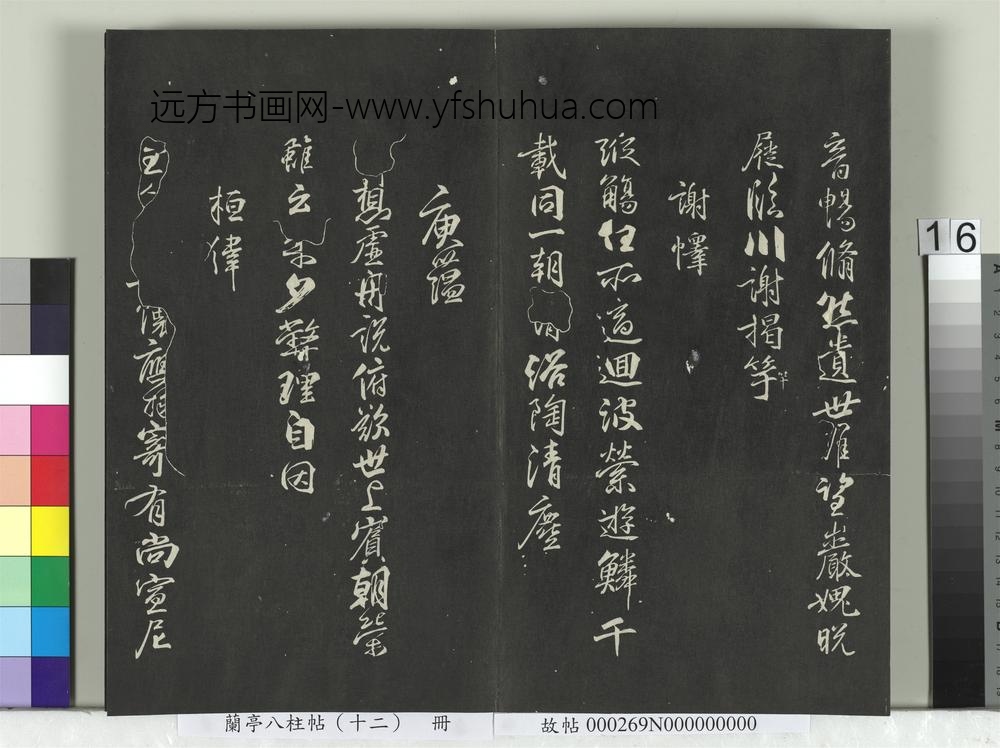 音暢翛然遺世難望巖愧脫
屣臨川謝揭竿
謝懌
縱觴任所適迴波縈遊鱗千
載同一朝浴陶清塵
庾蘊
想虛舟說俯歎世上賓朝榮
雖云樂夕斃理自因
桓偉
主人懷應物寄有尚宣尼
远方书画网-www.yfshuhua.com
16
蘭亭八柱帖（十二） 冊
故帖 000269N000000000